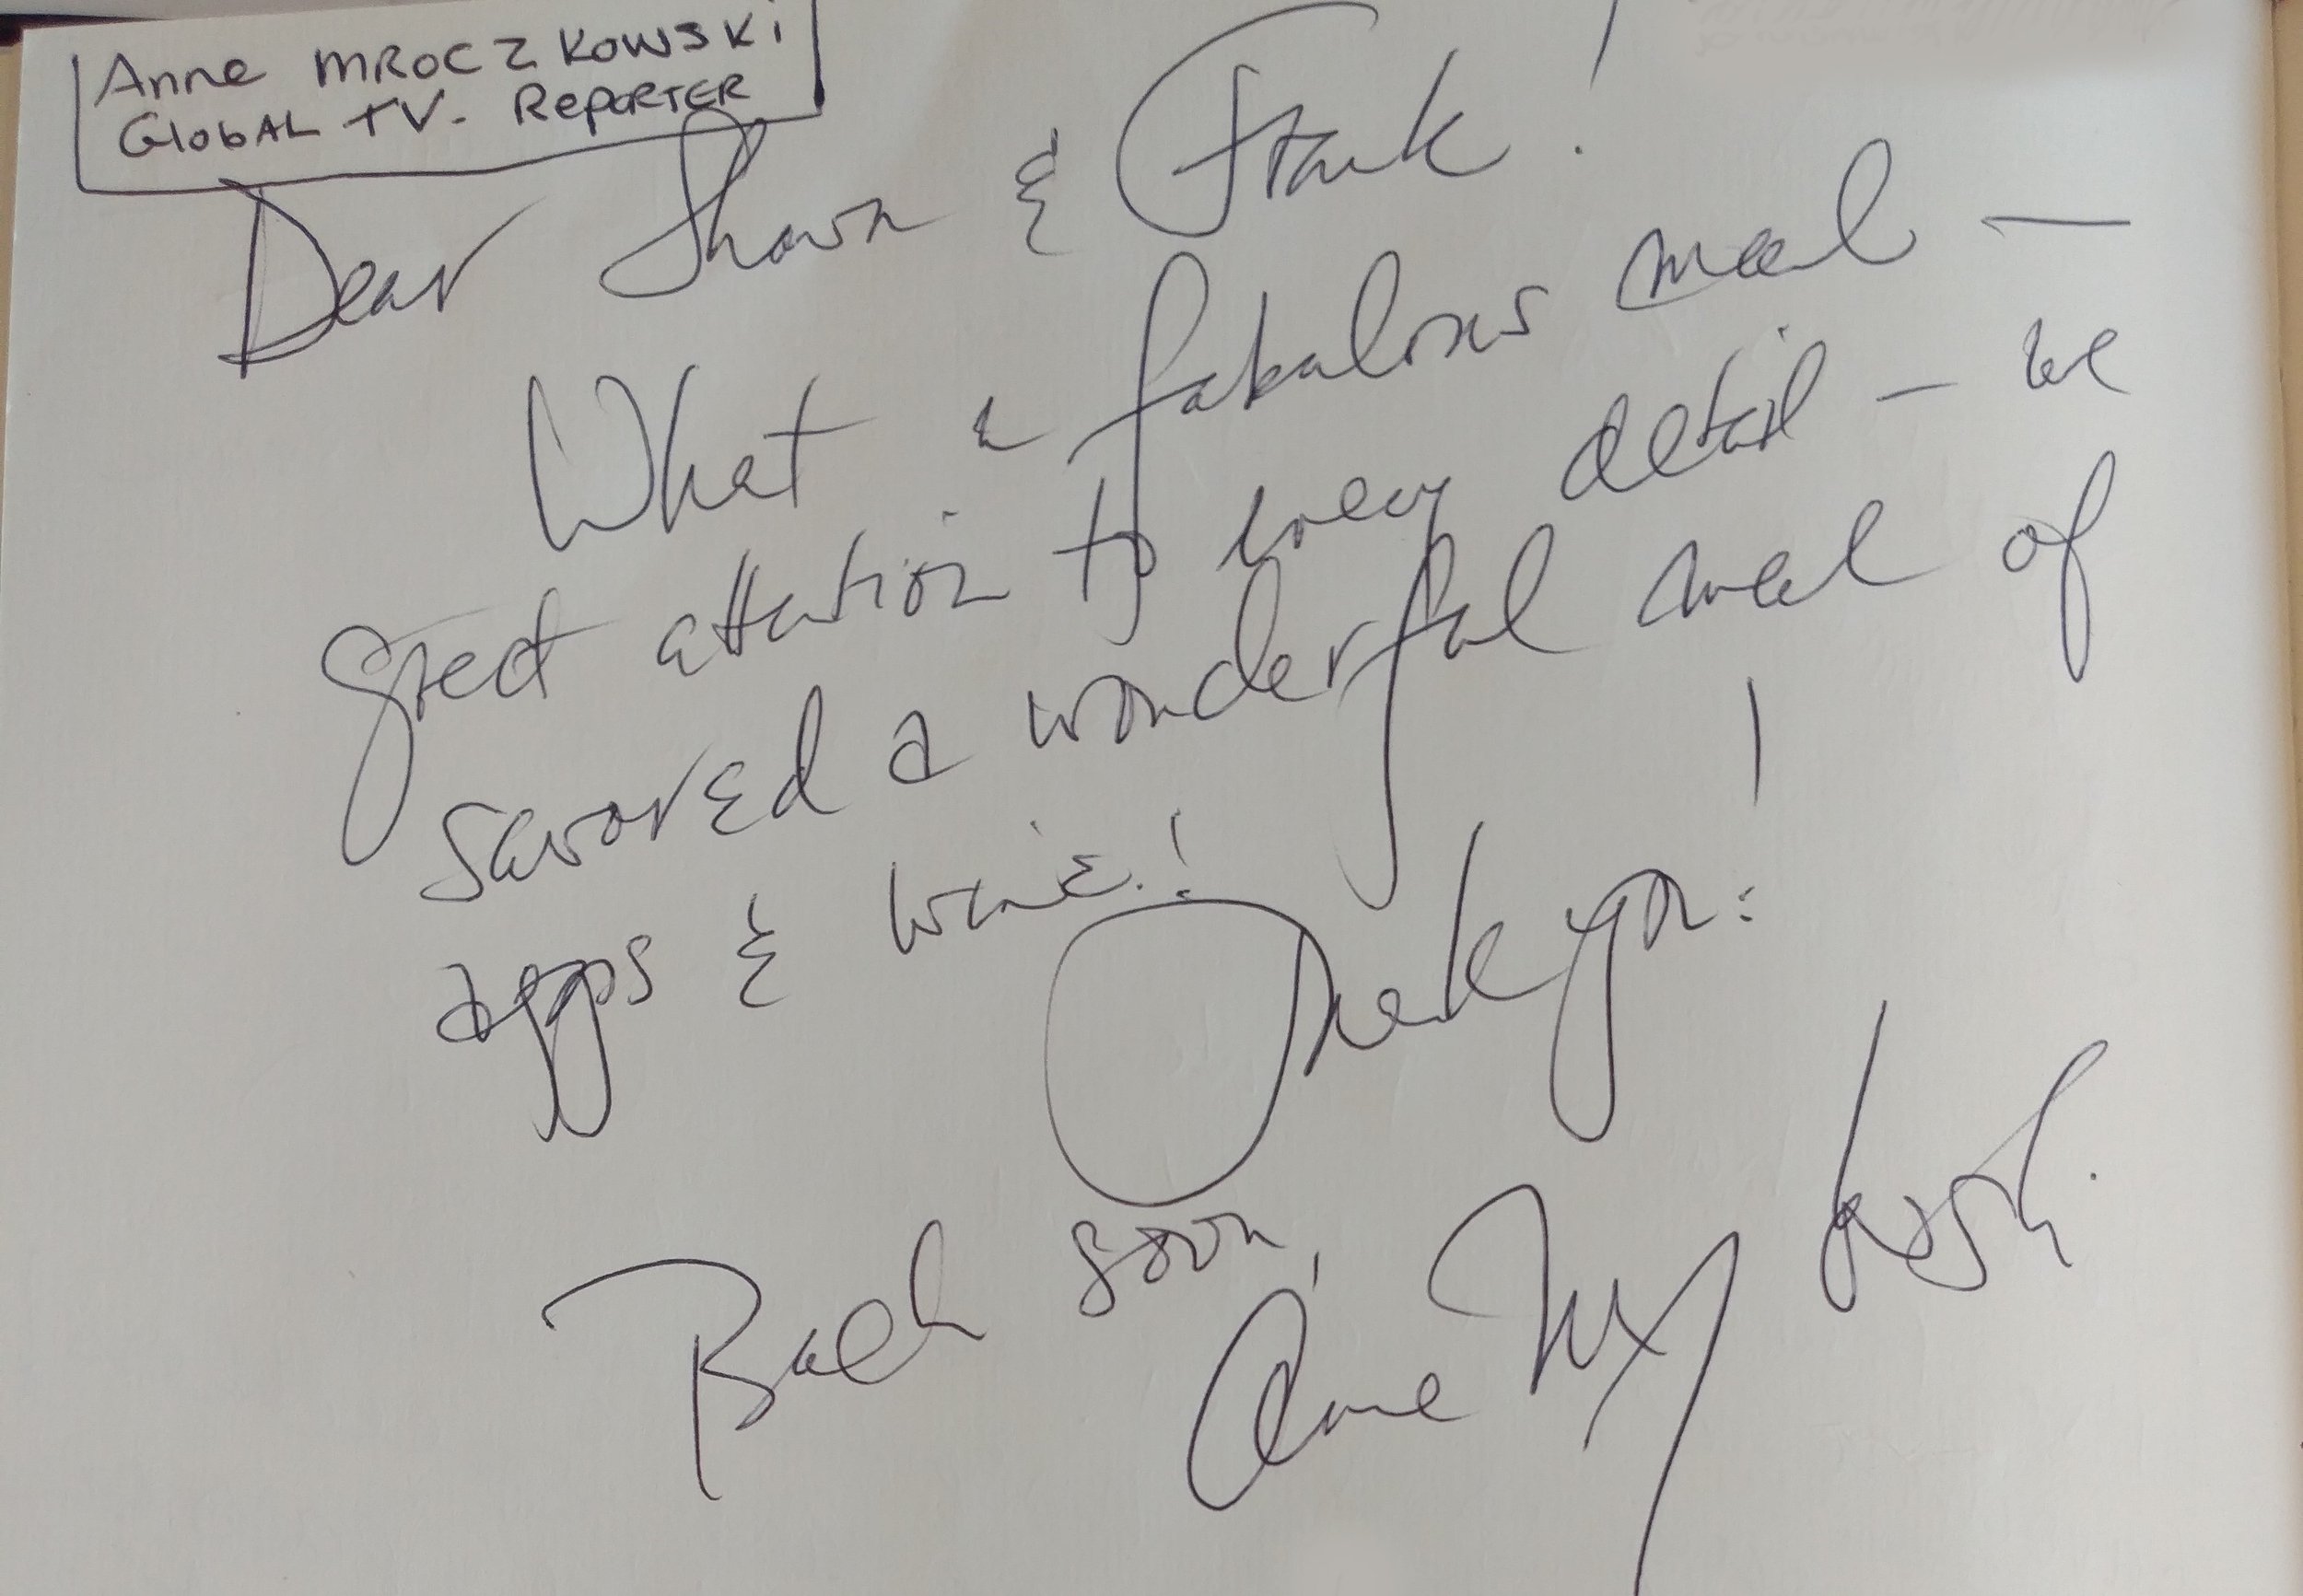 Anne MROCZKOWSKI
GLobAL TV. RePORTER
Dear Shawn & Frank!
What a fabulous meal —
great attention to every detail — we
savored a wonderful meal of
apps & wine!
Thank you!
Back soon,
Anne Mroczkowski